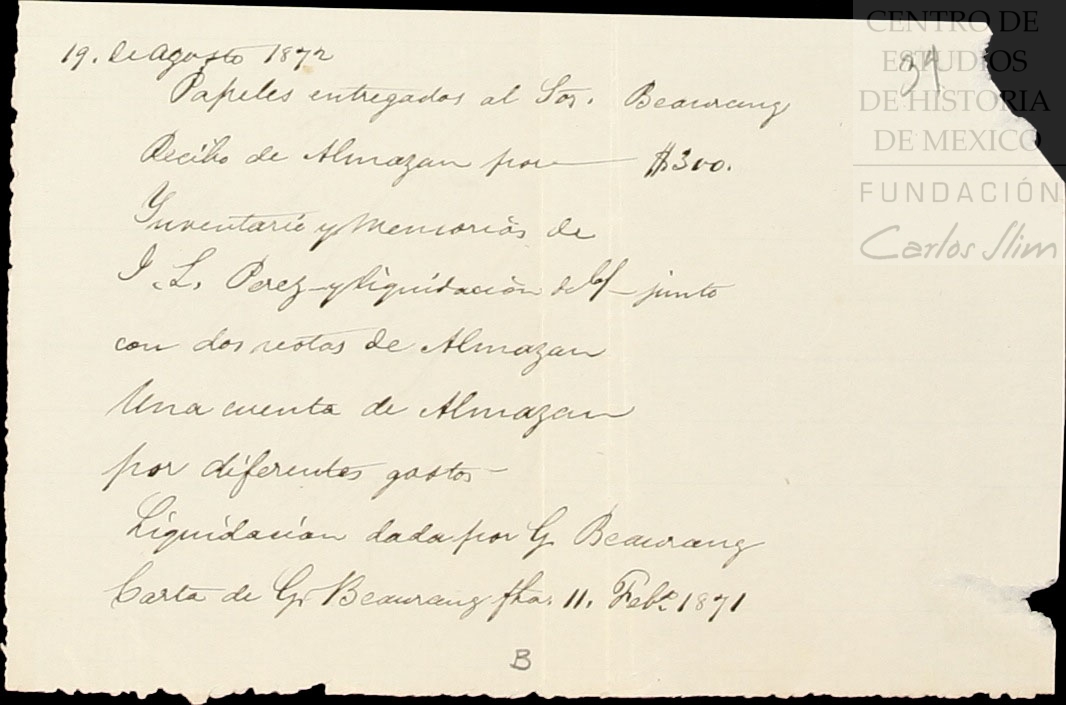 CENTRO DE
ESTUDIOS
DE HISTORIA
DE MEXICO
FUNDACIÓN
Carlos Slim
34
19. de Agosto 1872
Papeles entregados al Sor. Beaurang
Recibo de Almazan por — $300.
Inventario y Memorias de
J. L. Perez – y liquidacion del – junto
con dos notas de Almazan
Una cuenta de Almazan
por diferentes gastos –
Liquidacion dada por G. Beaurang
Carta de G. Beaurang fha. 11. Febo. 1871
B